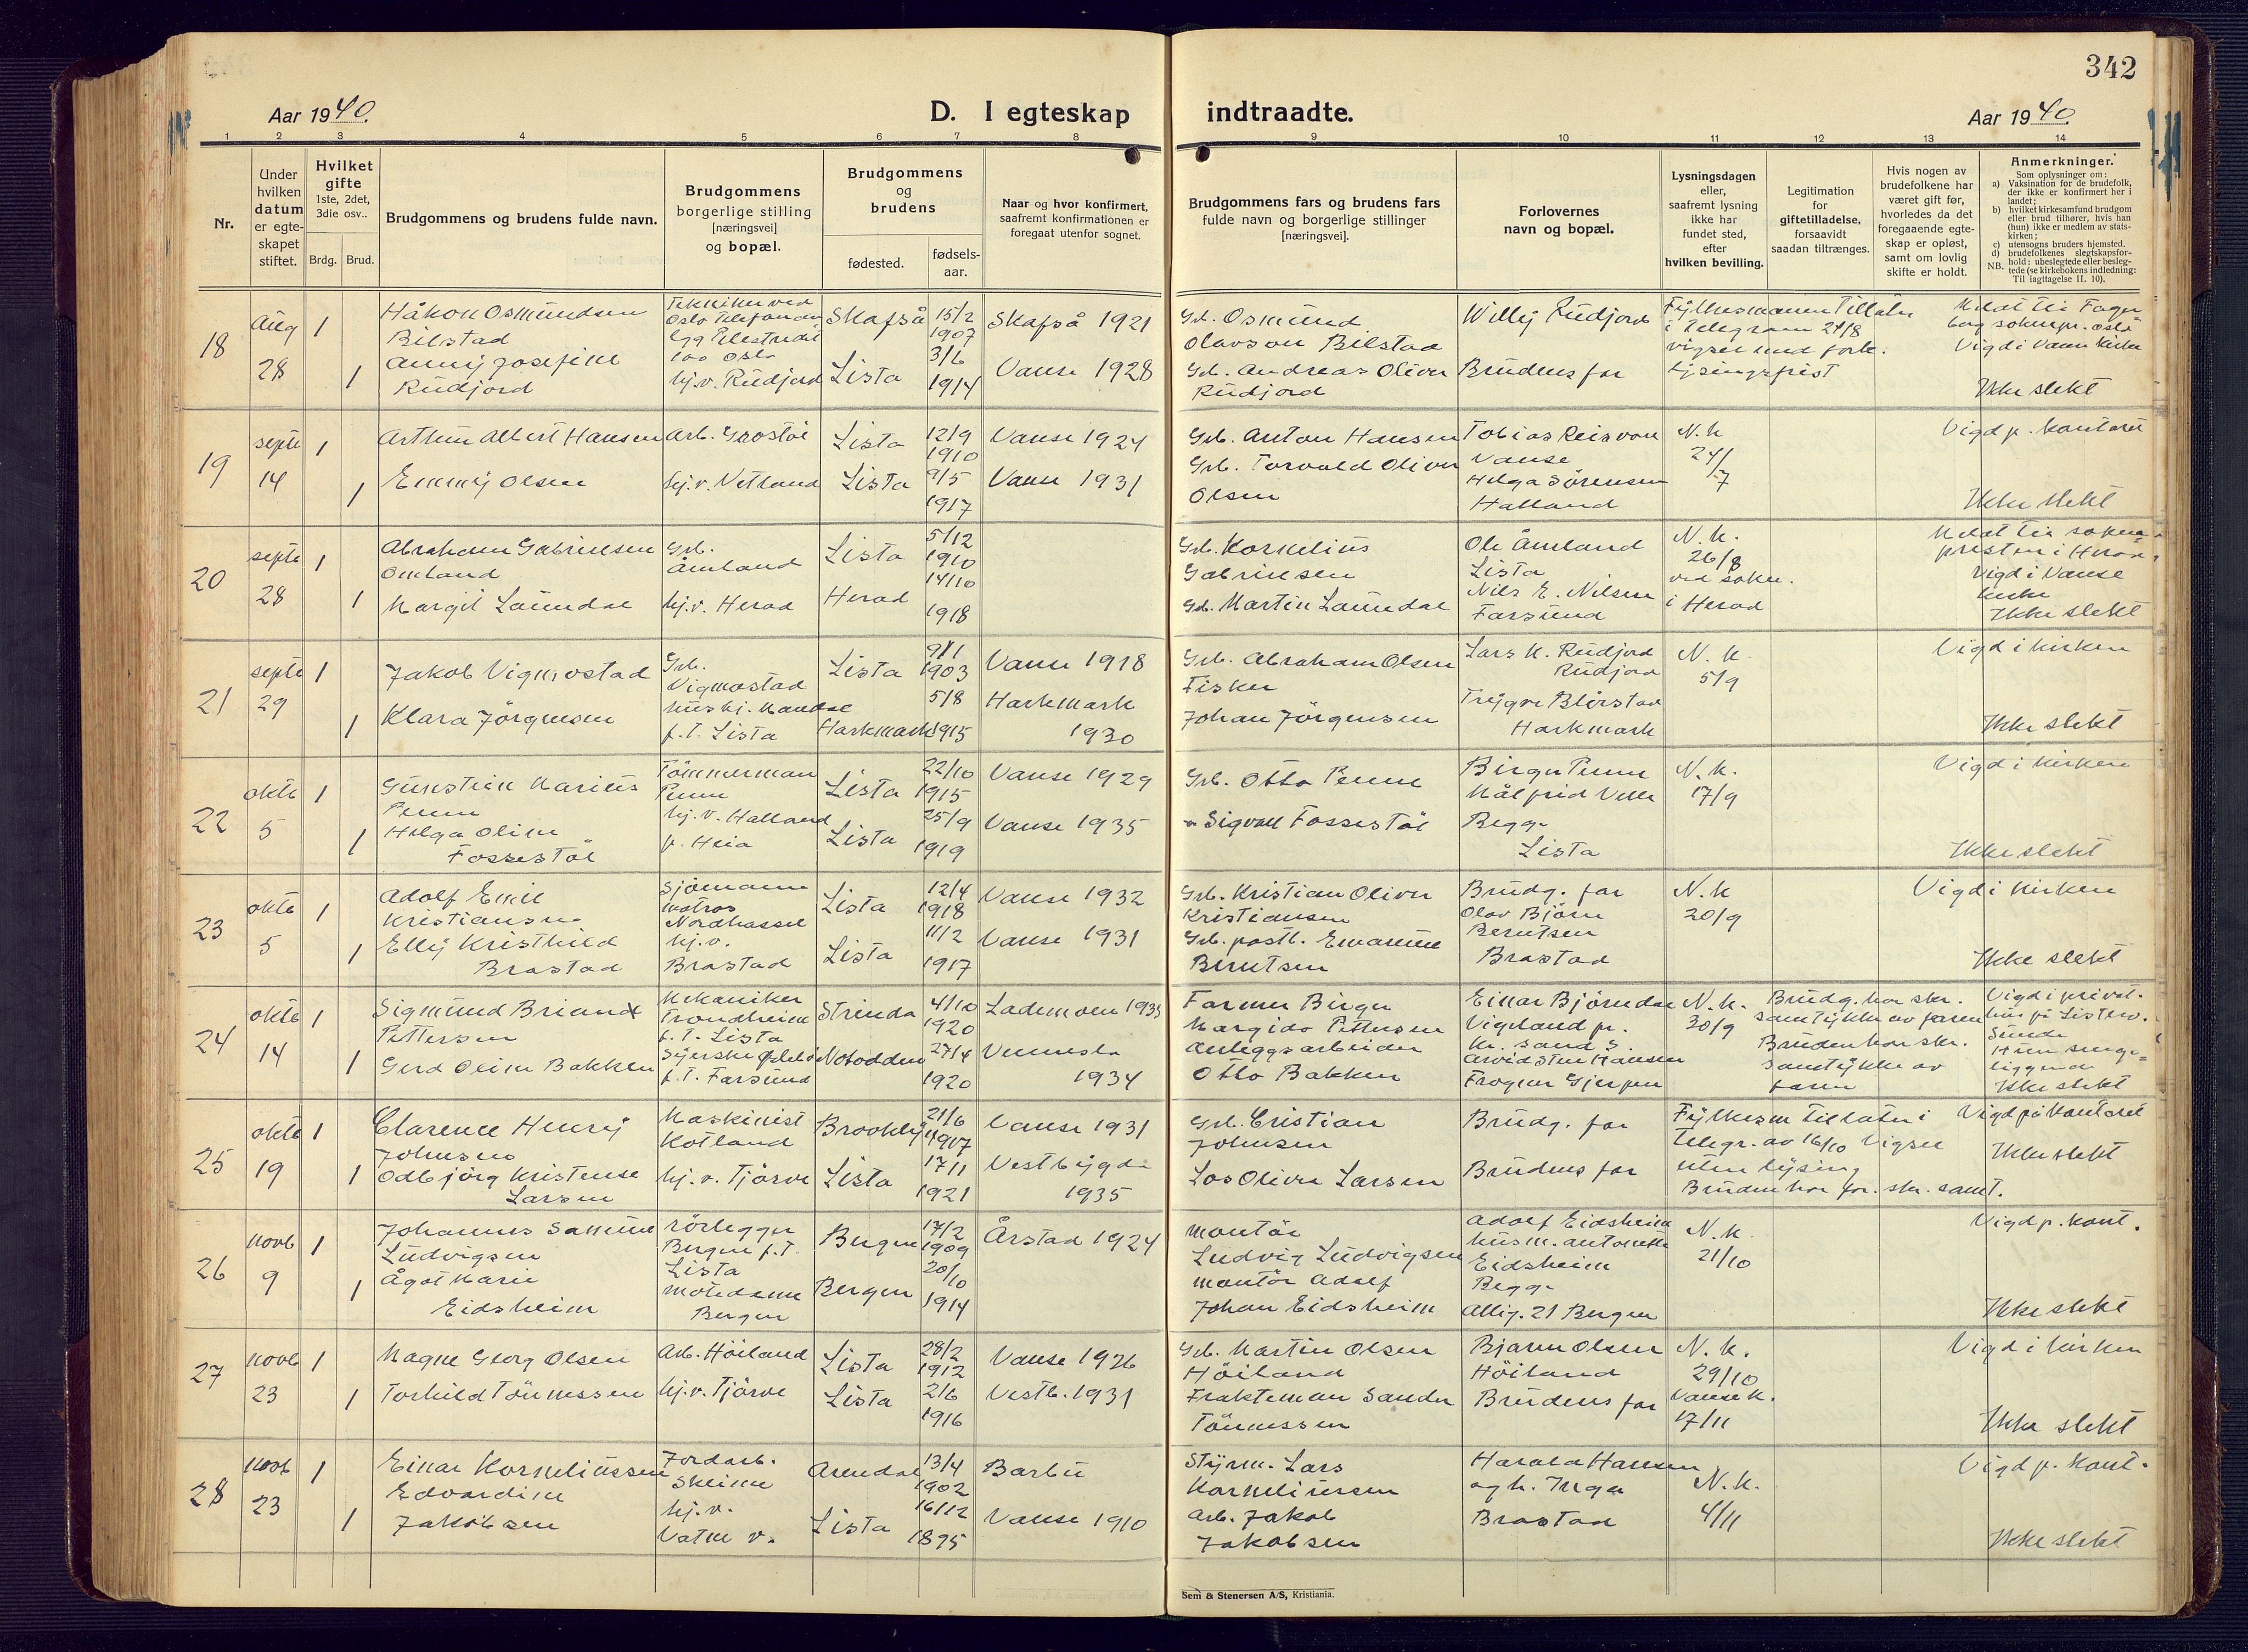 342
Aar 1940.
D. I egteskap indtraadte.
Aar 1940.
1 2 3 4 5 6 7 8 9 10 11 12 13 14
Nr.
Under
hvilken
datum
er egte-
skapet
stiftet.
Hvilket
gifte
1ste, 2det,
3die osv..
Brdg. Brud.
Brudgommens og brudens fulde navn.
Brudgommens
borgerlige stilling
[næringsvei]
og bopæl.
Brudgommens
og
brudens
fødested.
fødsels-
aar.
Naar og hvor konfirmert,
saafremt konfirmationen er
foregaat utenfor sognet.
Brudgommens fars og brudens fars
fulde navn og borgerlige stillinger
[næringsvei].
Forlovernes
navn og bopæl.
Lysningsdagen
eller,
saafremt lysning
ikke har
fundet sted,
efter
hvilken bevilling.
Legitimation
for
giftetilladelse,
forsaavidt
saadan tiltrænges.
Hvis nogen av
brudefolkene har
været gift før,
hvorledes da det
foregaaende egte-
skap er opløst,
samt om lovlig
skifte er holdt.
Anmerkninger.
Som oplysninger om:
a) Vaksination for de brudefolk,
der ikke er konfirmert her i
landet;
b) hvilket kirkesamfund brudgom
eller brud tilhører, hvis han
(hun) ikke er medlem av stats-
kirken;
c) utensogns bruders hjemsted.
d) brudefolkenes slegtskapsfor-
hold: ubeslegtede eller besleg-
NB. tede (se kirkebokens indledning:
Til iagttagelse II. 10).
18
Aug
28
1
1
Håkon Osmundsen
Bilstad
Anny Josefine
Rudjord
Tekniker ved
Oslo Telefonan
100 Oslo
hj.v. Rudjord
Skafså
Lista
15/2
1907
3/6
1914
Skafså 1921
Vanse 1928
Gb. Osmund
Olavson Bilstad
Gb. Andreas Oliver
Rudjord
Willy Rudjord
Brudens far
Fylkesmannen Tillater
i Telegram 24/8
vigsel med fork.
lysingsfrist
Meldt til Fager
borg soknepr. Oslo
Vigd i Vanse Kirke
Ikke slekt
19
septb
14
1
1
Arthur Albert Hansen
Emmy Olsen
Arb. Grostøl
hj.v. Vetland
Lista
Lista
12/9
1910
9/5
1917
Vanse 1924
Vanse 1931
Grb. Anton Hansen
Grb. Torvald Oliver
Olsen
Tobias Reisvoll
Vanse
Helga Sørensen
Halland
N.K
24/
7
Vigd p. Kontoret
Ikke slekt
20
septb
28
1
1
Abraham Gabrielsen
Omland
Margit Laundal
Grb.
Åmland
hj.v. Herad
Lista
Herad
5/12
1910
14/10
1918
Grb. Kornelius
Gabrielsen
Gb. Martin Laundal
Ole Åmland
Lista
Nils E. Nilsen
Farsund
N.K.
26/8
ved sokn.
i Herad
Meldt til sokne-
presten i Herad.
Vigd i Vanse
kirke
Ikke slekt
21
septb
29
1
1
Jakob Vigmostad
Klara Jörgensen
Grb.
Vigmostad
hushj. Mandal
f.T. Lista
Lista
Harkmark
9/1
1903
5/8
1915
Vanse 1918
Harkmark
1930
Grb. Abraham Olsen
Fisker
Johan Jörgensen
Lars K. Rudjord
Rudjord
Trygve Blörstad
Harkmark
N.K.
5/9
Vigd i kirken
Ikke slekt
22
oktb
5
1
1
Gunstein Marius
Penne
Helga Oline
Fossestöl
Tömmermann
Penne
hj.v. Halland
p. Heia
Lista
Lista
22/10
1915
25/9
1919
Vanse 1929
Vanse 1935
Grb. Otto Penne
" Sigvall Fossestöl
Birger Penne
Målfrid Velle
Begge
Lista
N.K.
17/9
Vigd i kirken
Ikke slekt
23
oktb
5
1
1
Adolf Emil
Kristiansen
Elly Kristhild
Brastad
Sjömann
matros
Nordhassel
hj.v.
Brastad
Lista
Lista
12/4
1918
11/2
1917
Vanse 1932
Vanse 1931
Grb. Kristian Oliver
Kristiansen
Grb. postb. Emanuel
Berntsen
Brudg. far
Olav Björn
Berntsen
Brastad
N.K
20/9
Vigd i kirken
Ikke slekt
24
oktb
14
1
1
Sigmund Briand
Pettersen
Gerd Oline Bakken
Mekaniker
Trondheim
f.T. Lista
Syerske
f.T. Farsund
Strinda
Notodden
4/10
1920
27/4
1920
Lademoen 1935
Vennesla
1934
Farmer Birger
Margido Pettersen
Anleggsarbeider
Otto Bakken
Einar Björndal
Vigeland pr.
Kr. sand S.
Arvid Sten Hansen
Frogner Gjerpen
N.K.
30/9
Brudg. har skr.
samtykke av faren
Bruden har skr.
samtykke av
faren
Vigd i privat-
hus på Listerv.
Sunde
Hun senge-
liggende
Ikke slekt
25
oktb
19
1
1
Clarence Henry
Johnsen
Odbjörg Kristense
Larsen
Maskinist
Kotland
hj.v. Tjörve
Brooklyn
Lista
21/6
1907
17/1
1921
Vanse 1931
Vestbygda
1935
Grb. Cristian
Johnsen
Los Oliver Larsen
Brudg. far
Brudens far
Fylkesm Tillater i
Telegr. av 16/10 Vigsel
uten lysing
Bruden har for. skr. samt.
Vigd på Kontoret
Ikke slekt
26
novb
9
1
1
Johannes Samuel
Ludvigsen
Ågot Marie
Eidsheim
rörlegger
Bergen f.T.
Lista
motedame
Bergen
Bergen
Bergen
17/2
1909
20/
10
1914
Årstad 1924
Montör
Ludvig Ludvigsen
montör Adolf
Johan Eidsheim
Adolf Eidsheim
husm. Antonette
Eidsheim
Begge
Alleg. 21 Bergen
N.K.
21/10
Vigd p. kont.
Ikke slekt
27
novb
23
1
1
Magne Georg Olsen
Torhild Tönnessen
Arb. Höiland
hj.v. Tjörve
Lista
Lista
28/2
1912
2/6
1916
Vanse 1926
Vestb. 1931
Grb. Martin Olsen
Höiland
Fraktemann Sander
Tönnessen
Bjarne Olsen
Höiland
Brudens far
N.K.
29/10
Vanse K.
17/11
Vigd i kirken
Ikke slekt
28
novb
23
1
1
Einar Korneliussen
Edvardine
Jakobsen
Jordarb.
Skeime
hj.v.
Vatne v.
Arendal
Lista
13/4
1902
16/12
1895
Barbu
Vanse 1910
Styrm. Lars
Korneliussen
Arb. Jakob
Jakobsen
Harald Hansen
og h. Inga
Brastad
N.K.
4/11
Vigd p. Kont.
Ikke slekt
Sem & Stenersen A/S, Kristiania.